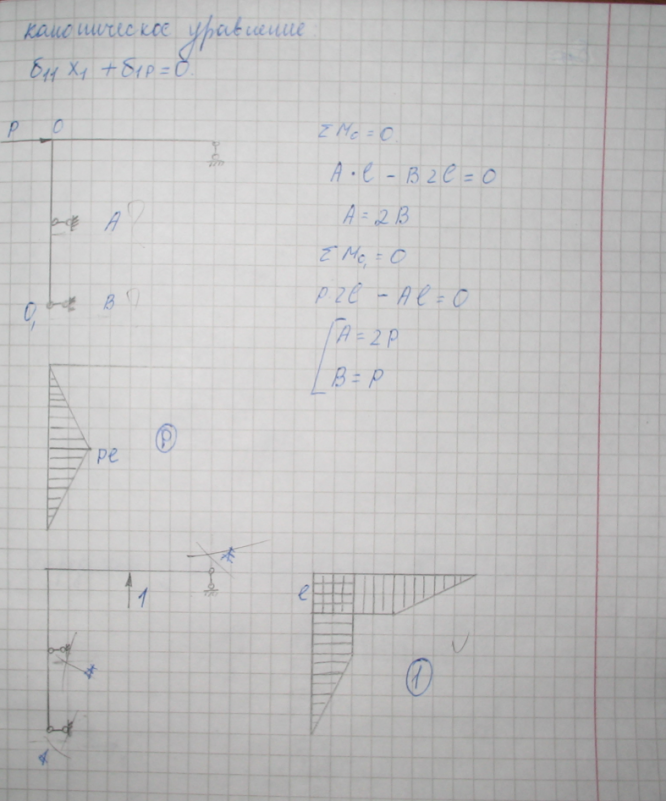 каноническое уравнение.
δ11 X1 + δ1P = 0.
P O
ΣMo = 0.
A·l - B2l = 0
A = 2B
ΣMO1 = 0
P2l - Al = 0
A = 2P
B = P
A
B
O1
Pl
P
1
l
1